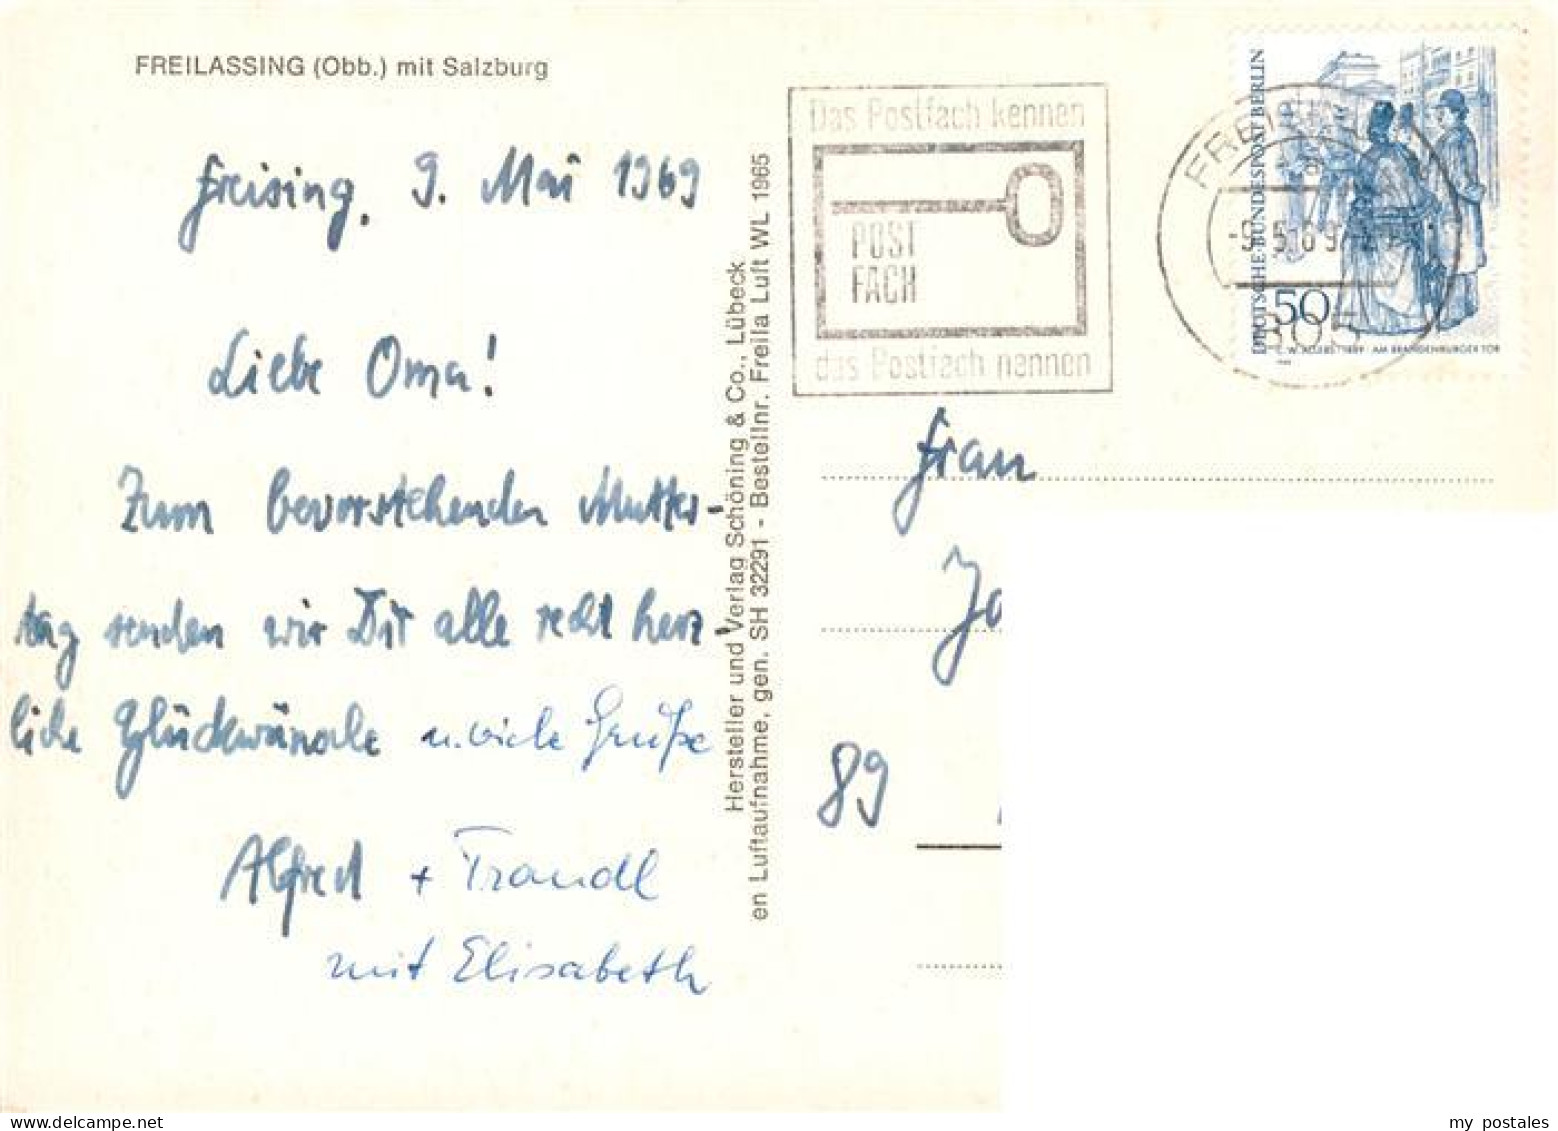 FREILASSING (Obb.) mit Salzburg
Freising, 9. Mai 1969
Liebe Oma!
Zum bevorstehenden Mutter-
tag senden wir Dir alle recht herz-
liche Glückwünsche u. viele Grüße
Alfred + Traudl
mit Elisabeth
Hersteller und Verlag Schöning & Co., Lübeck
en Luftaufnahme, gen. SH 32291 - Bestellnr. Freila Luft WL 1965
Das Postfach kennen
POST
FACH
das Postfach nennen
DEUTSCHE BUNDESPOST BERLIN
50
C. W. ALLERS 1889 · AM BRANDENBURGER TOR
FREISING
-9.5.69
805
Frau
Jo
89
my postales